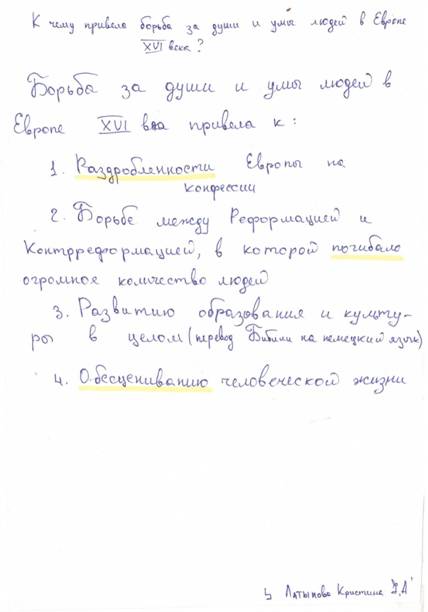 К чему привела борьба за души и умы людей в Европе
XVI века?
Борьба за души и умы людей в
Европе XVI вка привела к:
1. Раздробленности Европы на
конфессии
2. Борьбе между Реформацией и
Контрреформацией, в которой погибало
огромное количество людей
3. Развитию образования и культу-
ры в целом (перевод Библии на немецкий язык)
4. Обесцениванию человеческой жизни
Латыпова Кристина "А"